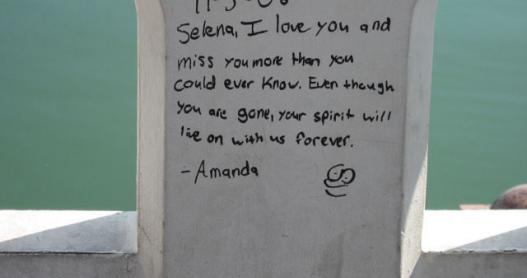 Selena, I love you and
miss you more than you
could ever know. Even though
you are gone, your spirit will
live on with us forever.
-Amanda